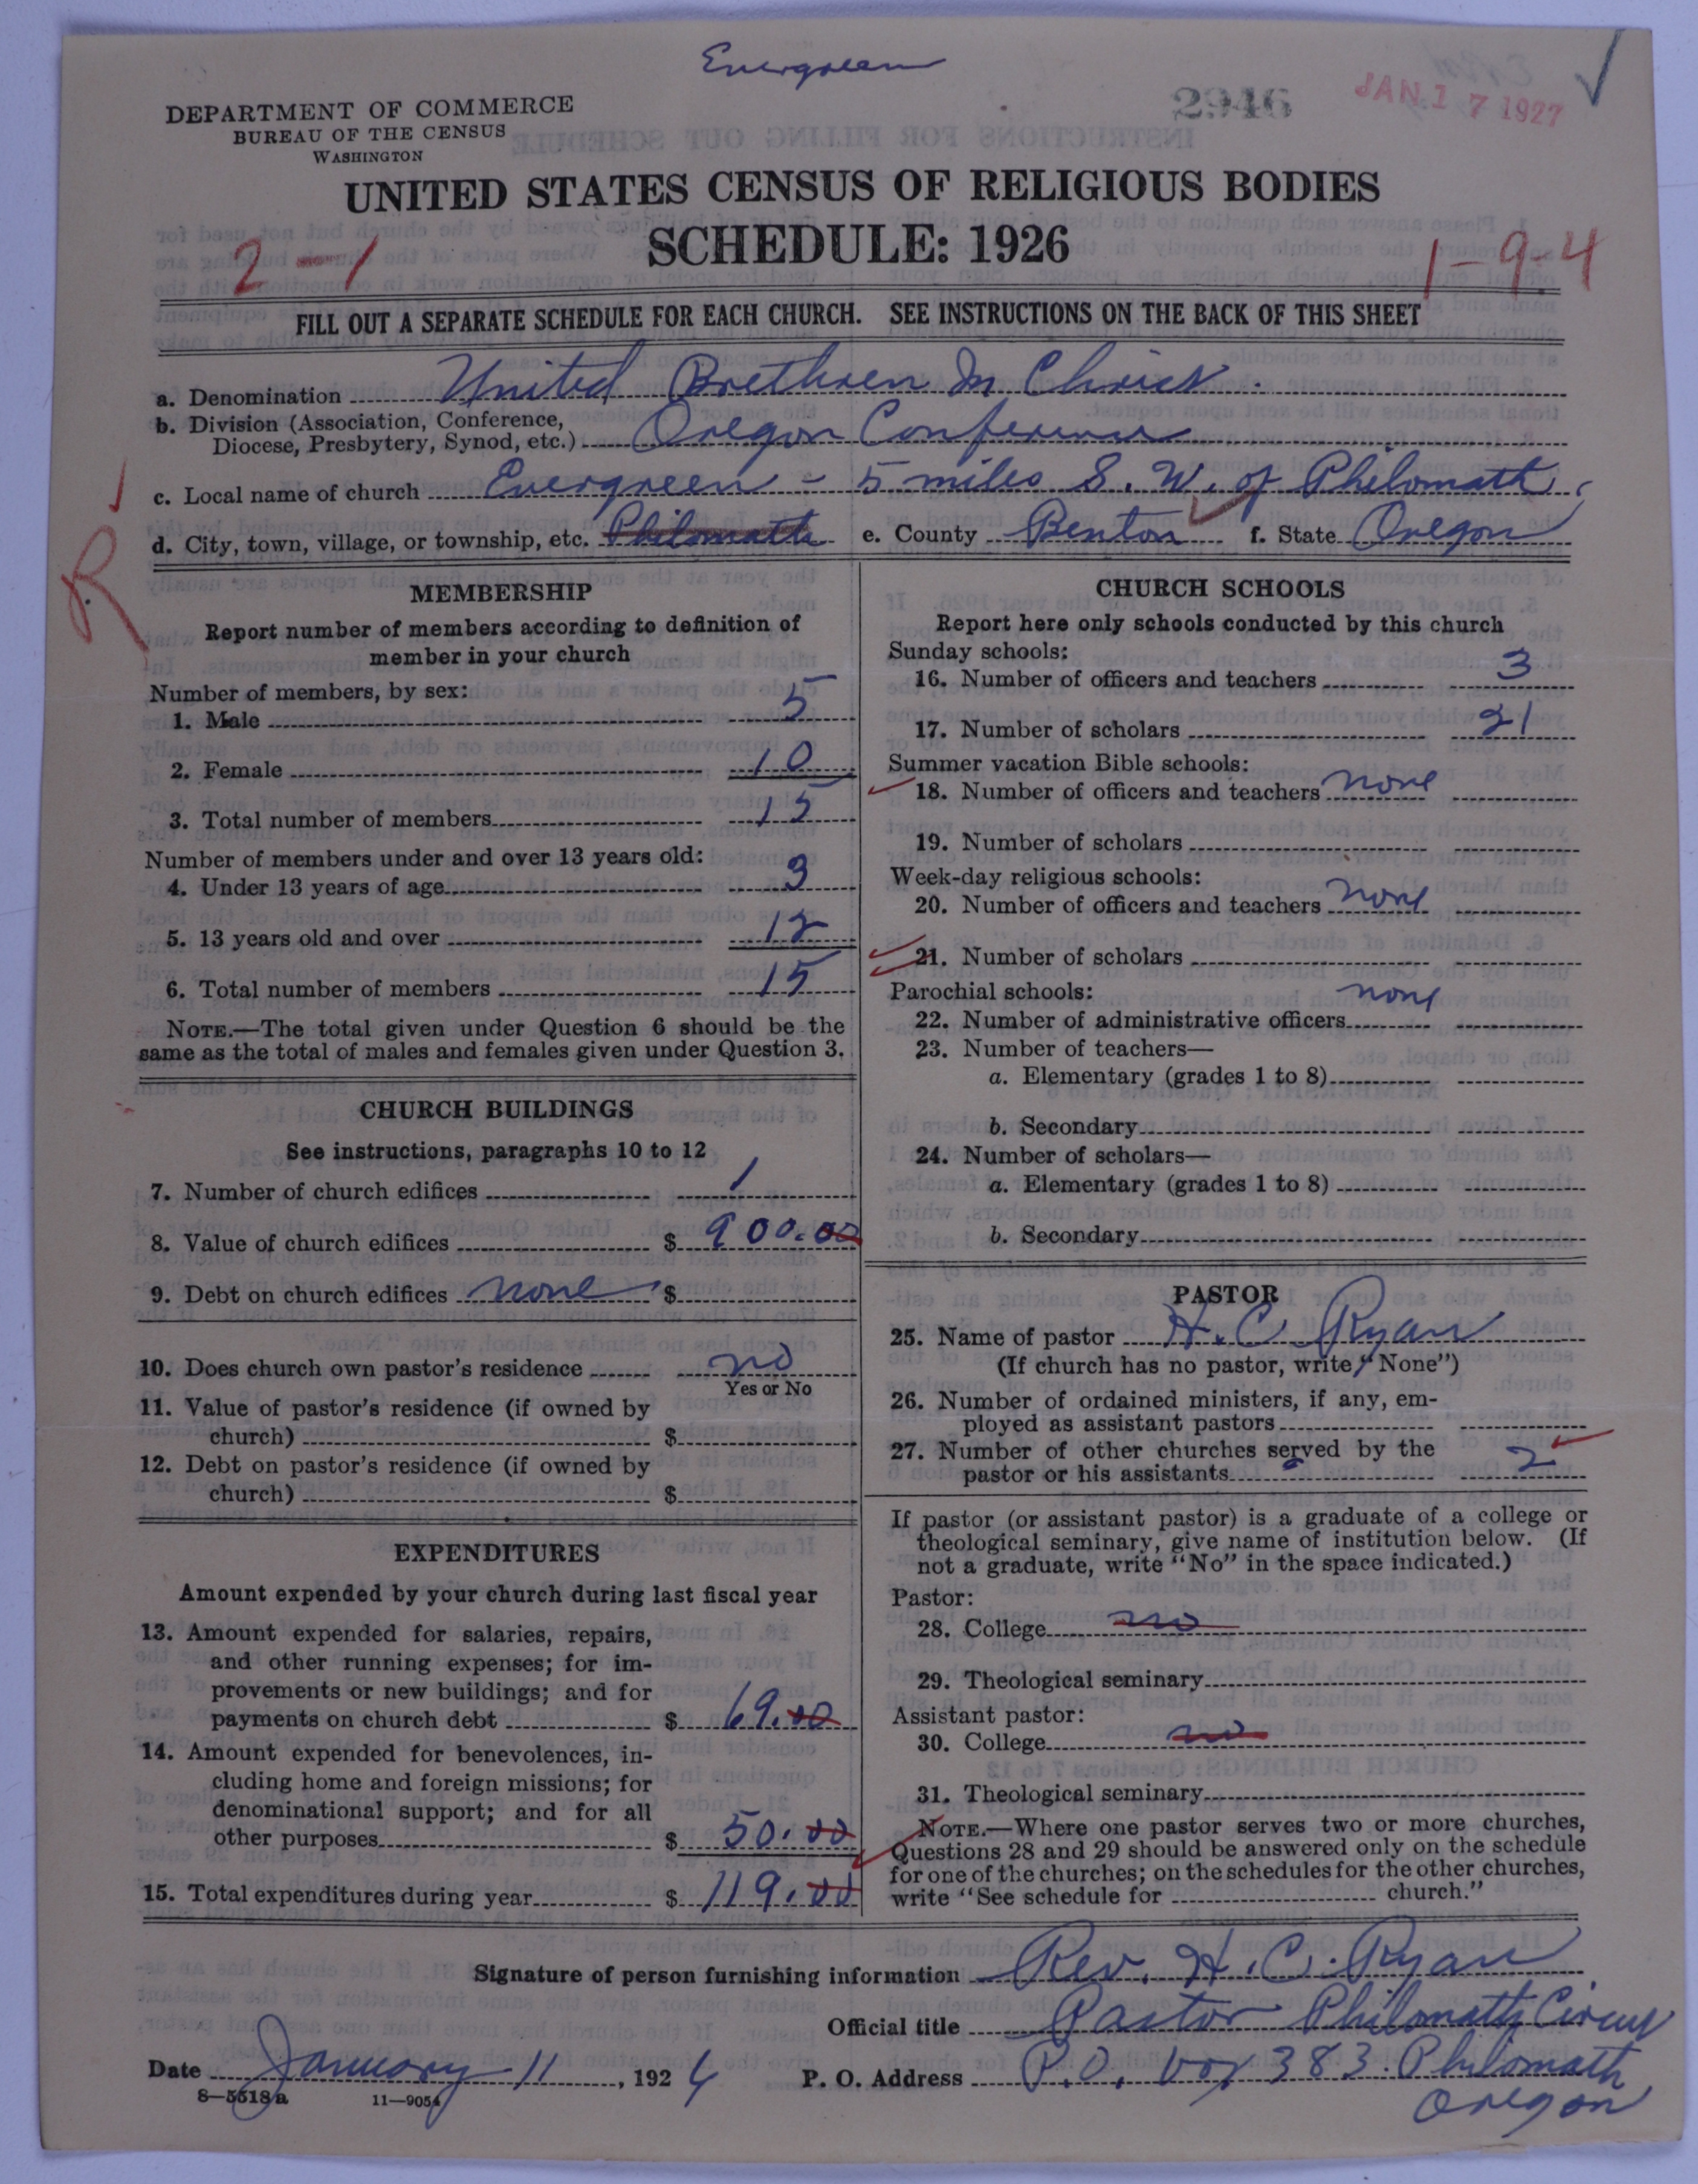 Evergreen
DEPARTMENT OF COMMERCE
BUREAU OF THE CENSUS
WASHINGTON
2946
JAN 17 1927
UNITED STATES CENSUS OF RELIGIOUS BODIES
SCHEDULE: 1926
2-1
1-9-4
FILL OUT A SEPARATE SCHEDULE FOR EACH CHURCH. SEE INSTRUCTIONS ON THE BACK OF THIS SHEET
a. Denomination United Brethren In Christ.
b. Division (Association, Conference,
Diocese, Presbytery, Synod, etc.) Oregon Conference
c. Local name of church Evergreen - 5 miles S. W. of Philomath
d. City, town, village, or township, etc. Philomath e. County Benton f. State Oregon
R
MEMBERSHIP
Report number of members according to definition of
member in your church
Number of members, by sex:
1. Male 5
2. Female 10
3. Total number of members 15
Number of members under and over 13 years old:
4. Under 13 years of age 3
5. 13 years old and over 12
6. Total number of members 15
NOTE.—The total given under Question 6 should be the
same as the total of males and females given under Question 3.
CHURCH BUILDINGS
See instructions, paragraphs 10 to 12
7. Number of church edifices 1
8. Value of church edifices $ 900.00
9. Debt on church edifices none $
10. Does church own pastor's residence no
Yes or No
11. Value of pastor's residence (if owned by
church) $
12. Debt on pastor's residence (if owned by
church) $
EXPENDITURES
Amount expended by your church during last fiscal year
13. Amount expended for salaries, repairs,
and other running expenses; for im-
provements or new buildings; and for
payments on church debt $ 69.00
14. Amount expended for benevolences, in-
cluding home and foreign missions; for
denominational support; and for all
other purposes $ 50.00
15. Total expenditures during year $ 119.00
CHURCH SCHOOLS
Report here only schools conducted by this church
Sunday schools:
16. Number of officers and teachers 3
17. Number of scholars 21
Summer vacation Bible schools:
18. Number of officers and teachers none
19. Number of scholars
Week-day religious schools:
20. Number of officers and teachers none
21. Number of scholars
Parochial schools: none
22. Number of administrative officers
23. Number of teachers—
a. Elementary (grades 1 to 8)
b. Secondary
24. Number of scholars—
a. Elementary (grades 1 to 8)
b. Secondary
PASTOR
25. Name of pastor H. C. Ryan
(If church has no pastor, write "None")
26. Number of ordained ministers, if any, em-
ployed as assistant pastors
27. Number of other churches served by the
pastor or his assistants 2
If pastor (or assistant pastor) is a graduate of a college or
theological seminary, give name of institution below. (If
not a graduate, write "No" in the space indicated.)
Pastor:
28. College no
29. Theological seminary
Assistant pastor:
30. College no
31. Theological seminary
NOTE.—Where one pastor serves two or more churches,
Questions 28 and 29 should be answered only on the schedule
for one of the churches; on the schedules for the other churches,
write "See schedule for church."
Signature of person furnishing information Rev. H. C. Ryan
Official title Pastor Philomath
Date January 11, 192
P. O. Address P.O. box 383. Philomath
Oregon
8-5518a 11-9054